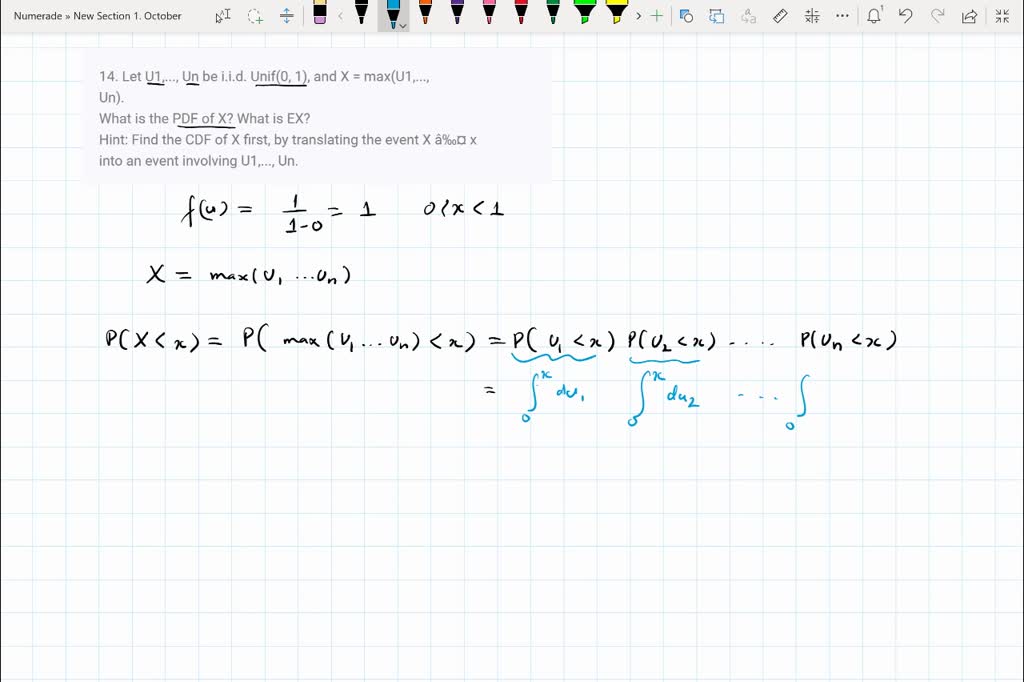 Numerade » New Section 1. October
14. Let U1,..., Un be i.i.d. Unif(0, 1), and X = max(U1,...,
Un).
What is the PDF of X? What is EX?
Hint: Find the CDF of X first, by translating the event X â‰¤ x
into an event involving U1,..., Un.
f(u) = 1/(1-0) = 1 0<x<1
X = max(U₁ ...Un)
P(X<x) = P( max(U₁...Un) <x) = P( U₁ <x) P(U₂<x) - .... P(Un<x)
= ∫₀ˣ du₁ ∫₀ˣ du₂ - ... ∫₀